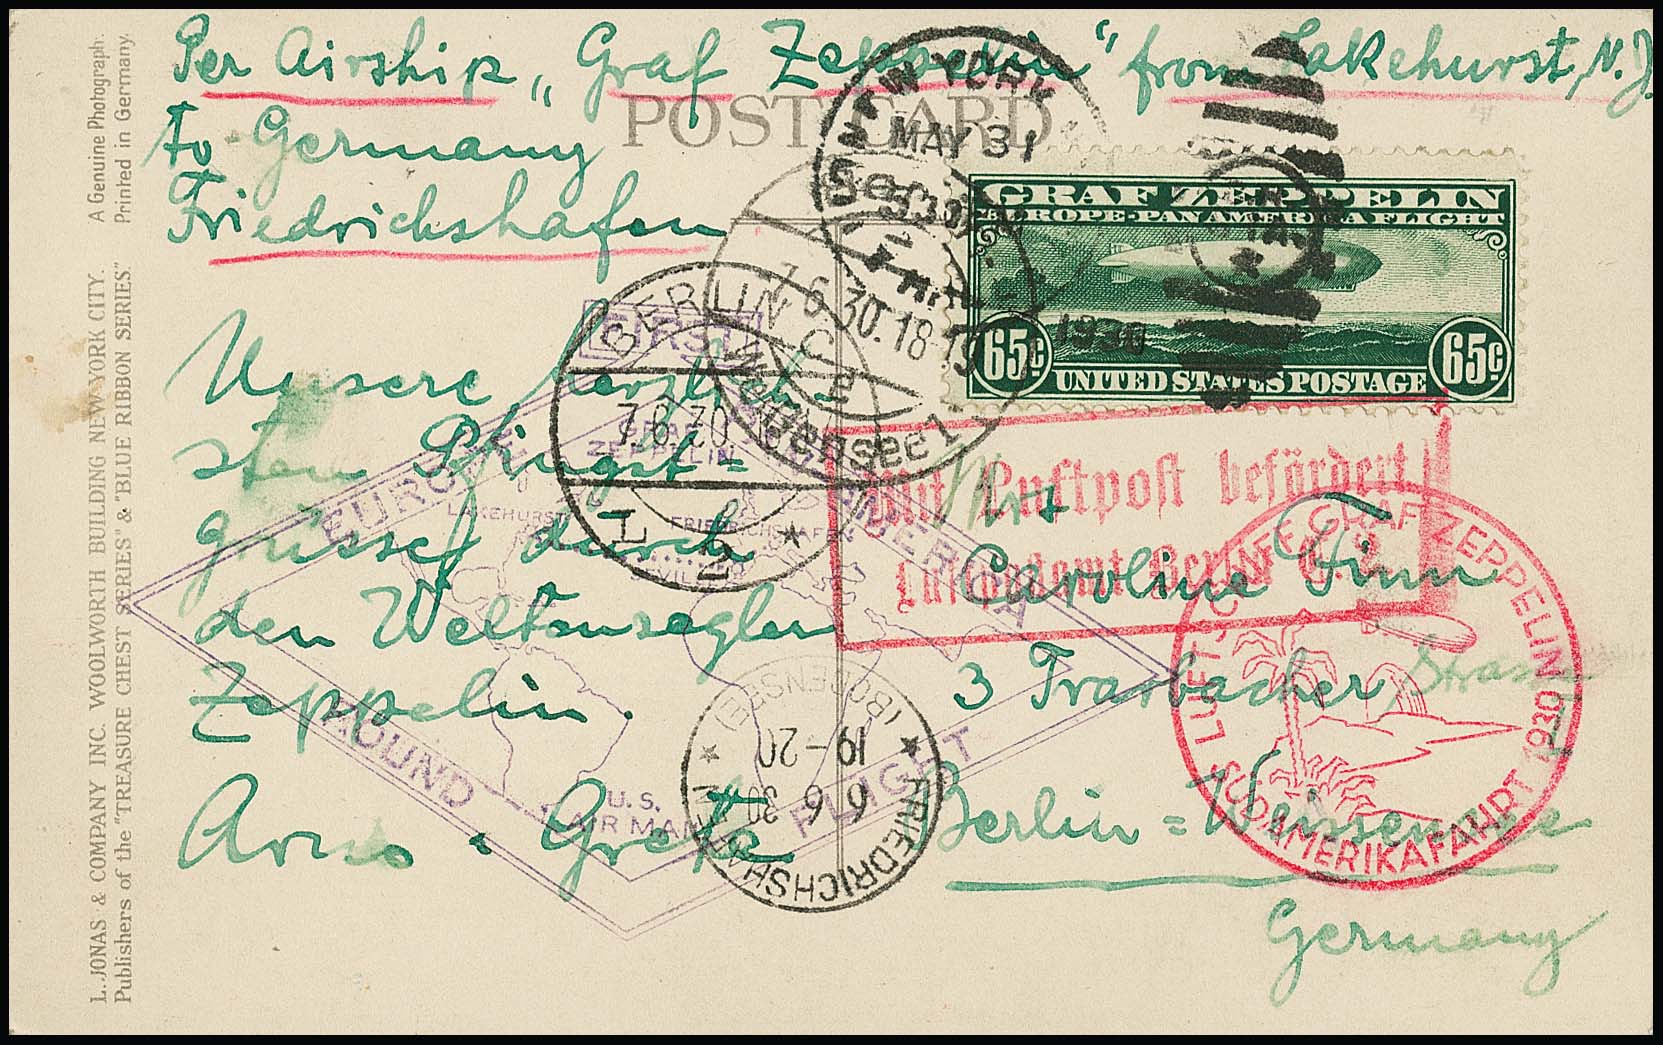 Per Airship „Graf Zeppelin“ from Lakehurst, N.J.
to Germany
Friedrichshafen
POST CARD
NEW YORK
MAY 31
530 PM
1930
GRAF ZEPPELIN
EUROPE-PAN AMERICA FLIGHT
65c 65c
UNITED STATES POSTAGE
BERLIN
7.6.30.18-19
Weißensee 1
BERLIN C2
7.6.30
L 2
Unsere herzlich-
sten Pfingst-
grüsse durch
den Weltumsegler
Zeppelin.
Arno u. Grete
FIRST
EUROPE PAN AMERICA
GRAF
ZEPPELIN
LAKEHURST
FRIEDRICHSHAFEN
SEVILLE
ROUND FLIGHT
U.S.
AIR MAIL
Mit Luftpost befördert
Luftpostamt Berlin C.2
Mrs
Caroline Finn
3 Trarbacher Strasse
Berlin = Weissensee
Germany
LUFTSCHIFF GRAF ZEPPELIN
SÜDAMERIKAFAHRT 1930
FRIEDRICHSHAFEN
(BODENSEE)
6 6 30
19-20
A Genuine Photograph.
Printed in Germany.
L. JONAS & COMPANY INC. WOOLWORTH BUILDING NEW-YORK CITY.
Publishers of the "TREASURE CHEST SERIES" & "BLUE RIBBON SERIES"